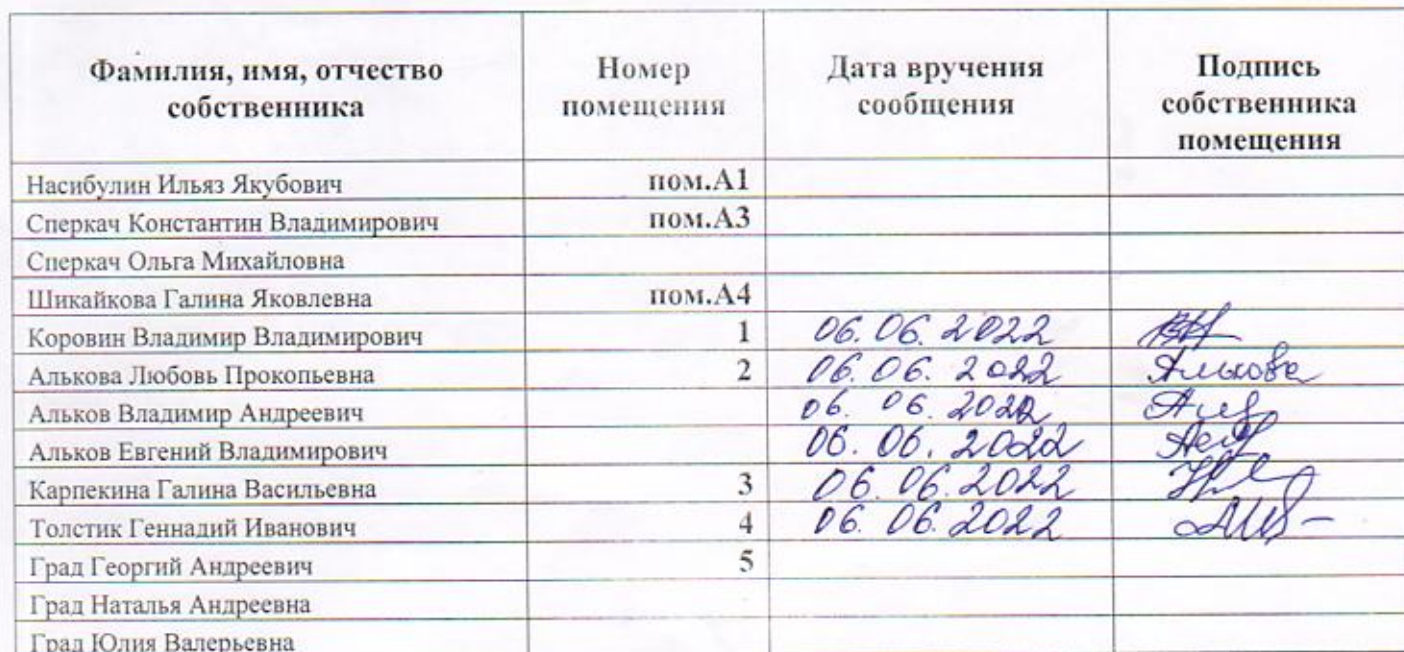 Фамилия, имя, отчество собственника Номер помещения Дата вручения сообщения Подпись собственника помещения
Насибулин Ильяз Якубович пом.А1
Сперкач Константин Владимирович пом.А3
Сперкач Ольга Михайловна
Шикайкова Галина Яковлевна пом.А4
Коровин Владимир Владимирович 1 06.06.2022
Алькова Любовь Прокопьевна 2 06.06.2022 Алькова
Альков Владимир Андреевич 06.06.2022
Альков Евгений Владимирович 06.06.2022
Карпекина Галина Васильевна 3 06.06.2022
Толстик Геннадий Иванович 4 06.06.2022
Град Георгий Андреевич 5
Град Наталья Андреевна
Град Юлия Валерьевна